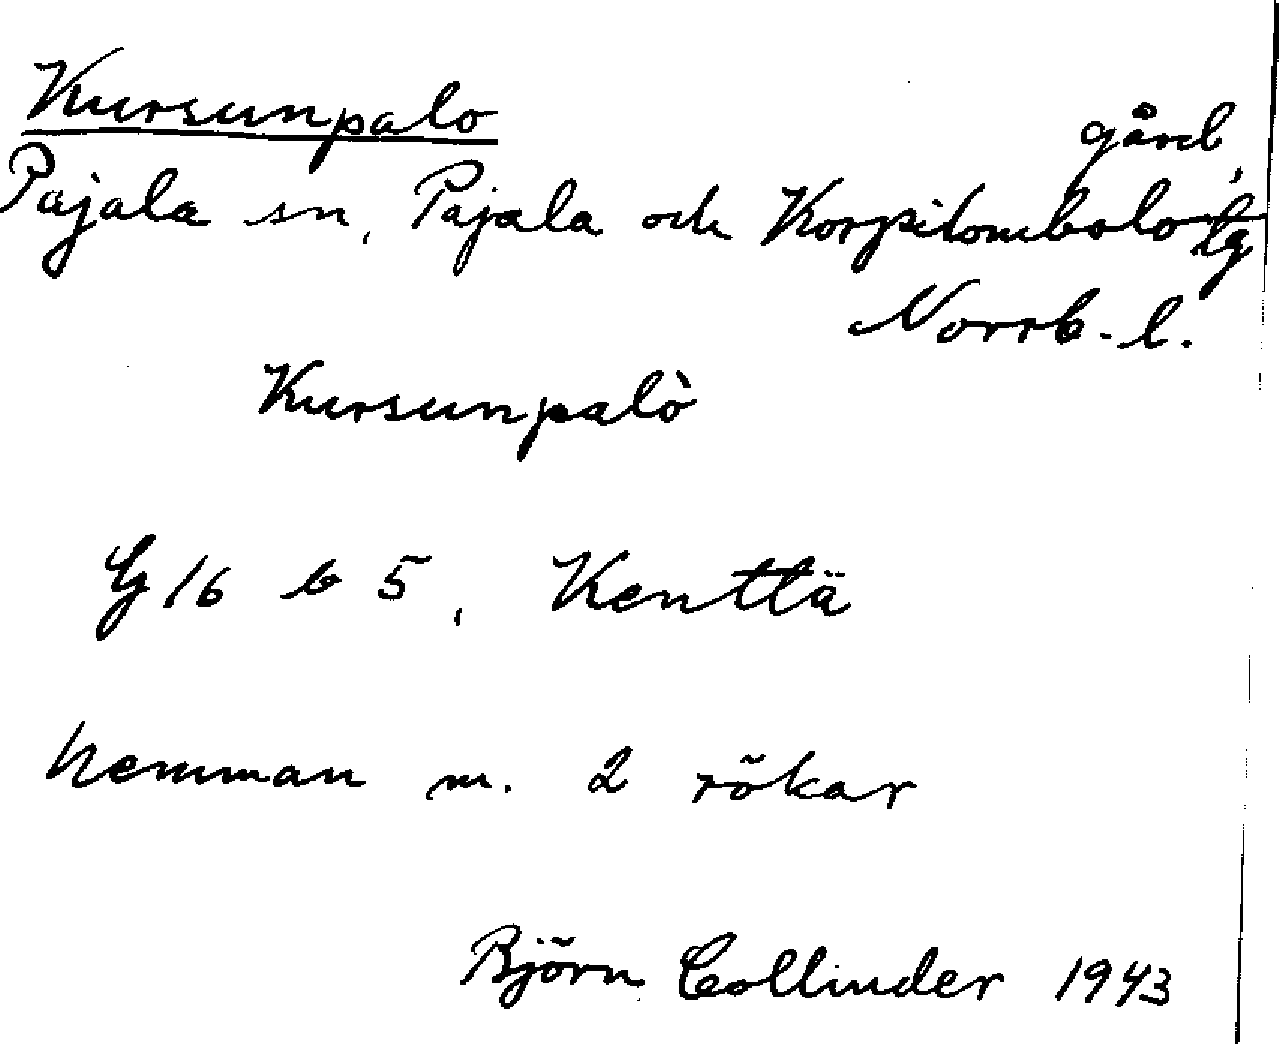 Kursunpalo
gård,
Pajala sn, Pajala och Korpilombolo tg
Norrb. l.
Kursunpalò
G 16 b 5, Kenttä
hemman m. 2 rökar
Björn Collinder 1943